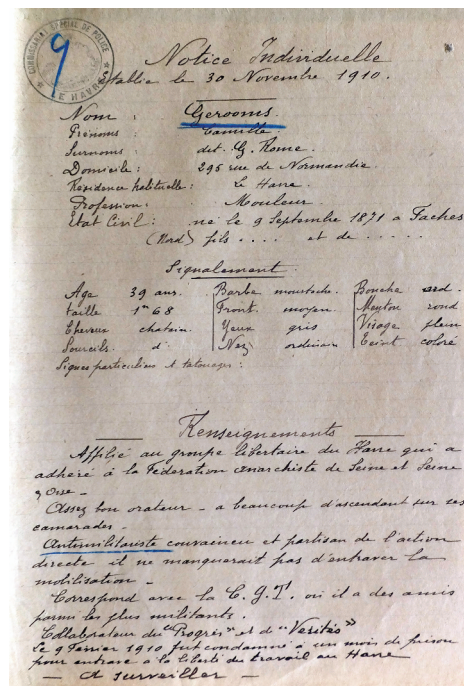 COMMISSARIAT SPÉCIAL DE POLICE
LE HAVRE
9
Notice Individuelle
établie le 30 Novembre 1910.
Nom : Gerooms.
Prénoms : Camille.
Surnoms : dit. G. Rome.
Domicile : 295 rue de Normandie.
Residence habituelle : Le Havre.
Profession : Mouleur.
Etat Civil : né le 9 Septembre 1871 a Faches
(Nord) fils .... et de .....
Signalement
Age 39 ans. Barbe moustache. Bouche ord.
taille 1m68 Front. moyen. Menton rond
Cheveux chatain. Yeux gris Visage plein
Sourcils. d° Nez ordinaire Teint coloré
Signes particuliers et tatouages :
Renseignements
Affilié au groupe libertaire du Havre qui a
adhéré à la Fédération anarchiste de Seine et Seine
& Oise -
Assez bon orateur - a beaucoup d'ascendant sur ses
camarades -
Antimilitariste convaincu et partisan de l'action
directe il ne manquerait pas d'entraver la
mobilisation -
Correspond avec la C. G. T. où il a des amis
parmi les plus militants.
Collaborateur du "Progrès" et de "Vérités"
Le 9 Janvier 1910 fut condamné à un mois de prison
pour entrave a la liberté du travail au Havre
- A surveiller -